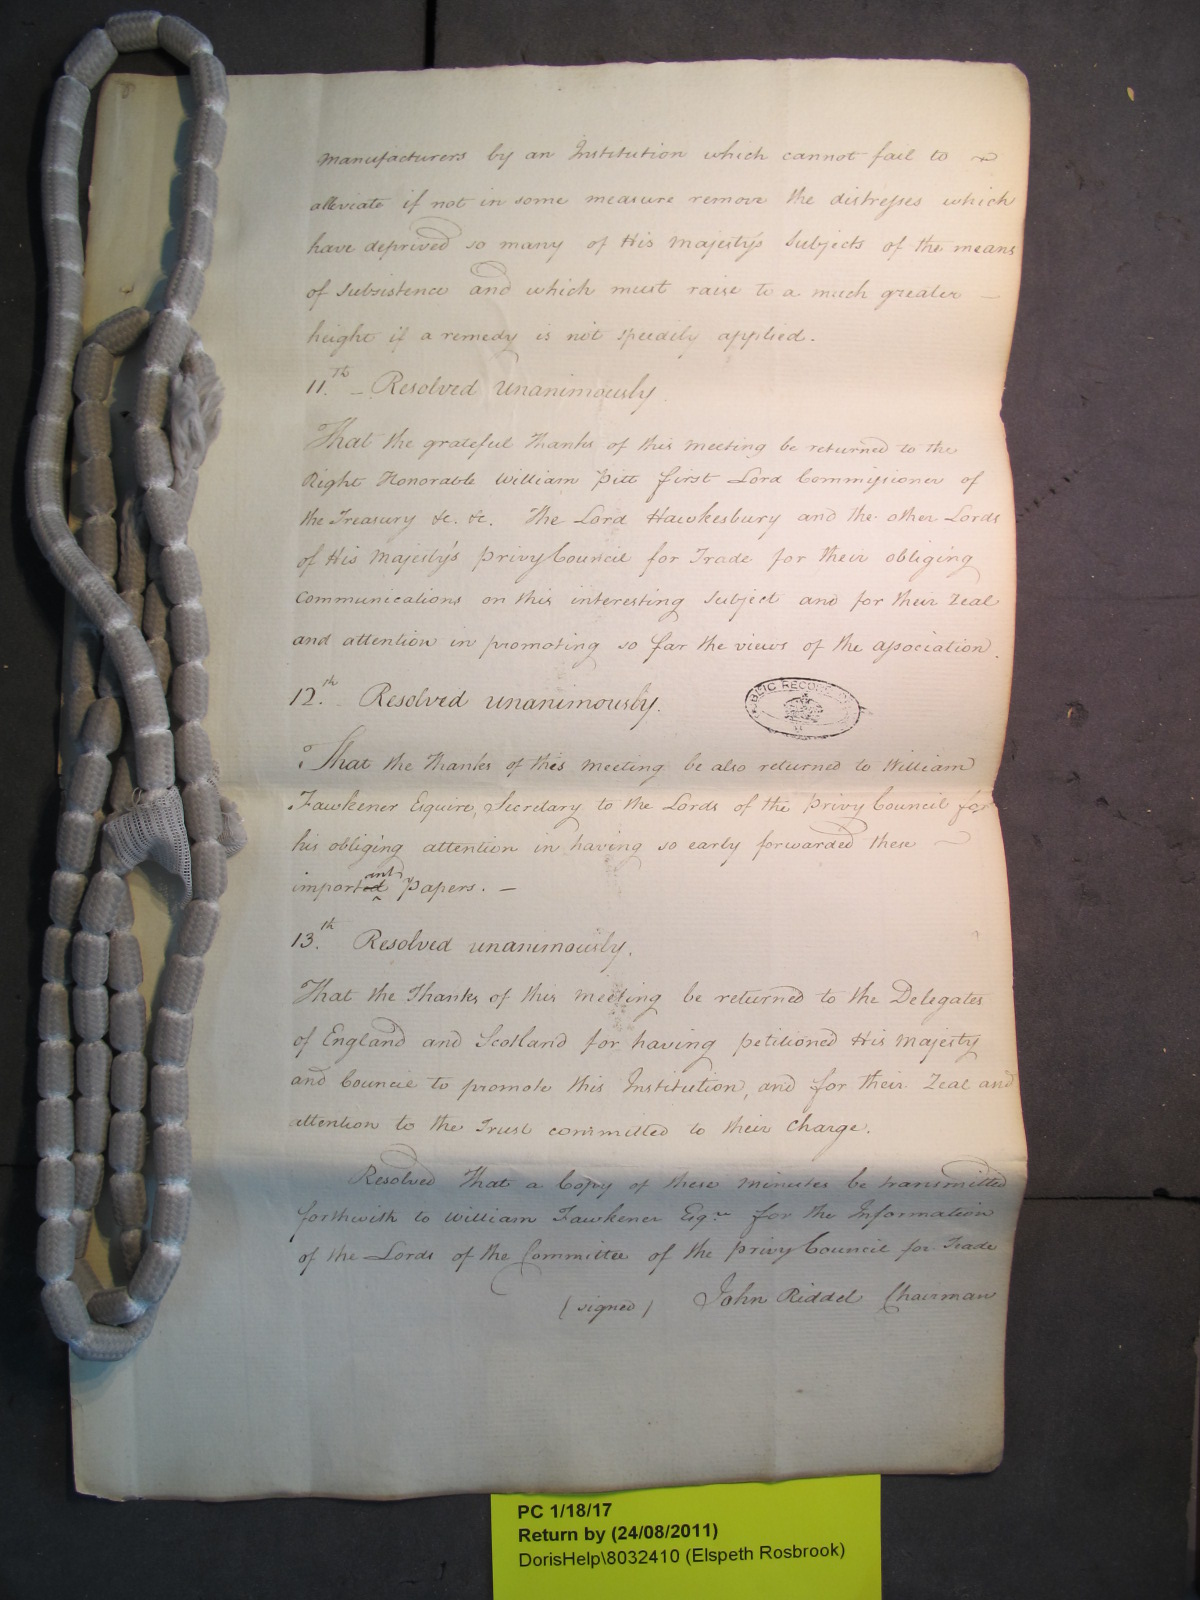 manufacturers by an Institution which cannot fail to
alleviate if not in some measure remove the distresses which
have deprived so many of His Majesty's Subjects of the means
of subsistence and which must raise to a much greater —
height if a remedy is not speedily applied.
11.th – Resolved unanimously
That the grateful Thanks of this meeting be returned to the
Right Honorable William Pitt first Lord Commissioner of
the Treasury &c. &c. The Lord Hawkesbury and the other Lords
of His Majesty's Privy Council for Trade for their obliging
communications on this interesting Subject and for their Zeal
and attention in promoting so far the views of the association.
12.th Resolved unanimously.
PUBLIC RECORD
That the Thanks of this meeting be also returned to William
Fawkener Esquire, Secretary to the Lords of the Privy Council for
his obliging attention in having so early forwarded these
important Papers. —
13.th Resolved unanimously.
That the Thanks of this meeting be returned to the Delegates
of England and Scotland for having petitioned His Majesty
and Council to promote this Institution, and for their Zeal and
attention to the Trust committed to their Charge.
Resolved That a Copy of these minutes be transmitted
forthwith to William Fawkener Esqre for the Information
of the Lords of the Committee of the Privy Council for Trade
(signed) John Riddel Chairman
PC 1/18/17
Return by (24/08/2011)
DorisHelp\8032410 (Elspeth Rosbrook)